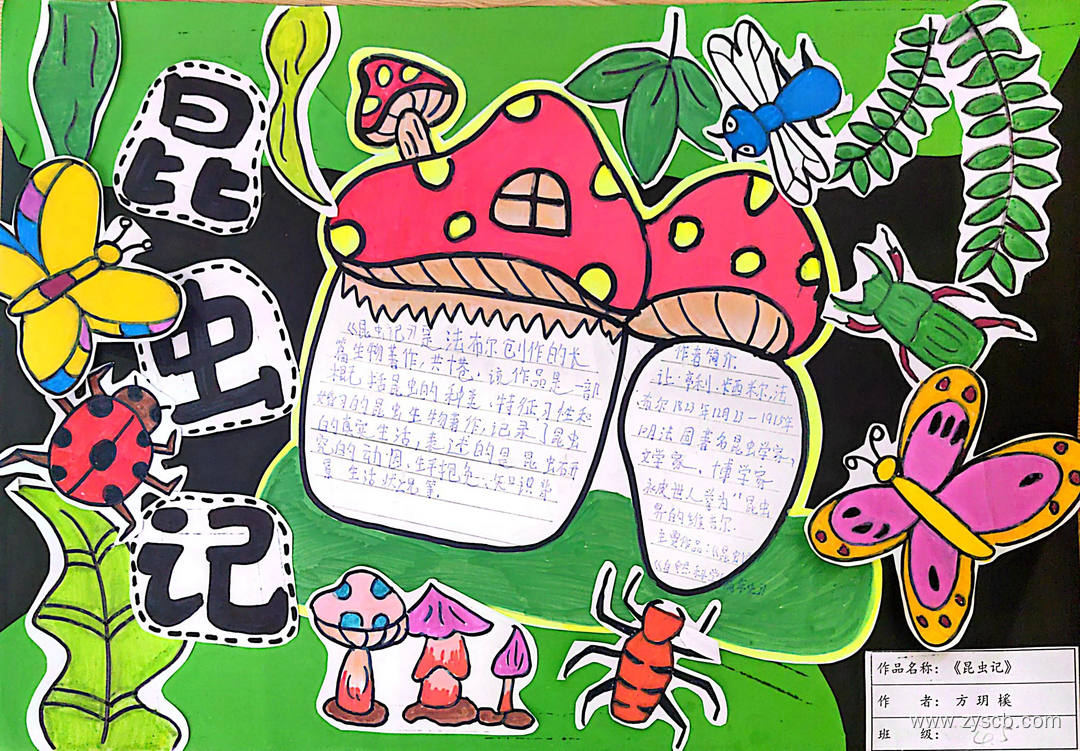 昆
虫
记
《昆虫记》是法布尔创作的长
篇生物著作,共十卷,该作品是一部
概括昆虫的种类、特征、习性和
婚习的昆虫生物著作,记录了昆虫
的真实生活,表述的是昆虫
生活状况等.
作者简介.
让·亨利·卡西米尔·法
布尔1823年12月23-1915年
10月法国著名昆虫学家,
文学家,博学家
永被世人誉为"昆虫
界的维吉尔.
主要作品:《昆虫
《自然科学
作品名称:《昆虫记》
作 者:方玥榽
班 级:
www.zyscb.com